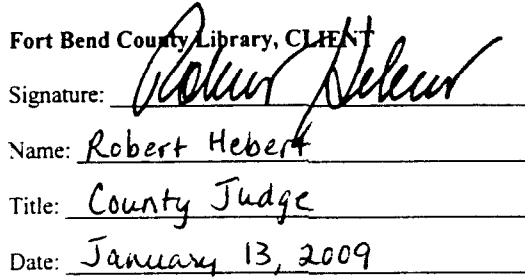 Fort Bend County Library, CLIENT
Signature:
Name: Robert Hebert
Title: County Judge
Date: January 13, 2009